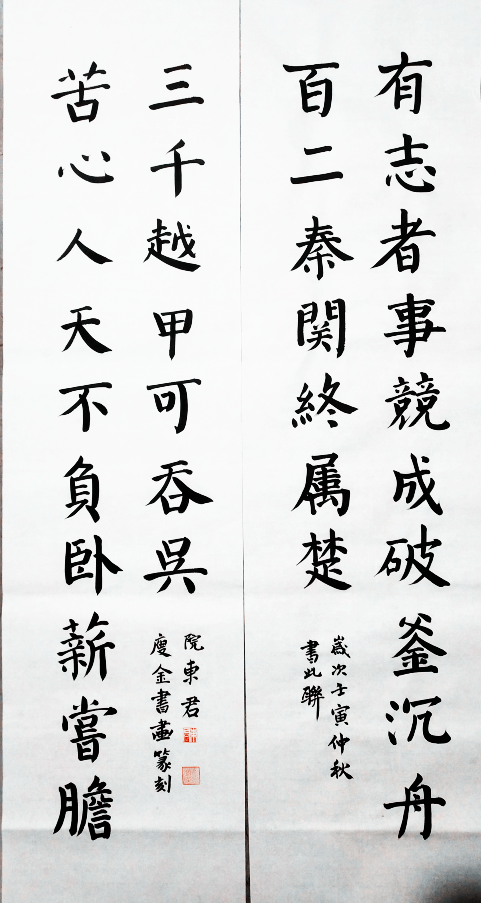 有志者事競成破釜沉舟
百二秦関終属楚
歲次壬寅仲秋
書此聯
苦心人天不負卧薪嘗膽
三千越甲可吞吳
廋金書畫篆刻
院東君